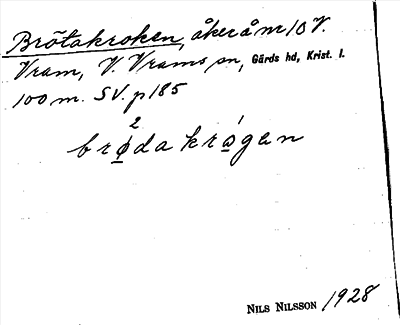 Brötakroken, åker å nr 10 V.
Vram, V. Vrams sn, Gärds hd, Krist. l.
100 m. SV. p 185
2 ′
brødakrogen
NILS NILSSON 1928